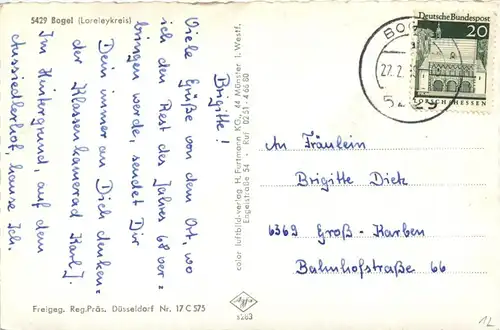 5429 Bogel (Loreleykreis)
Brigitte!
Viele Grüße von dem Ort, wo
ich den Rest des Jahres 68 ver-
bringen werde, sendet Dir
Dein immer an Dich denken-
der Klassenkamerad Karl J.
Im Hintergrund, auf dem
Aussiedlerhof, hause ich.
Freigeg. Reg.Präs. Düsseldorf Nr. 17 C 575
color luftbild-verlag H. Fortmann KG., 44 Münster i. Westf.
Engelstraße 54 · Ruf 0251-46680
Agfa
s283
Deutsche Bundespost
20
LORSCH/HESSEN
BOG
22.2.
An Fräulein
Brigitte Dietz
6369 Groß-Karben
Bahnhofstraße 66